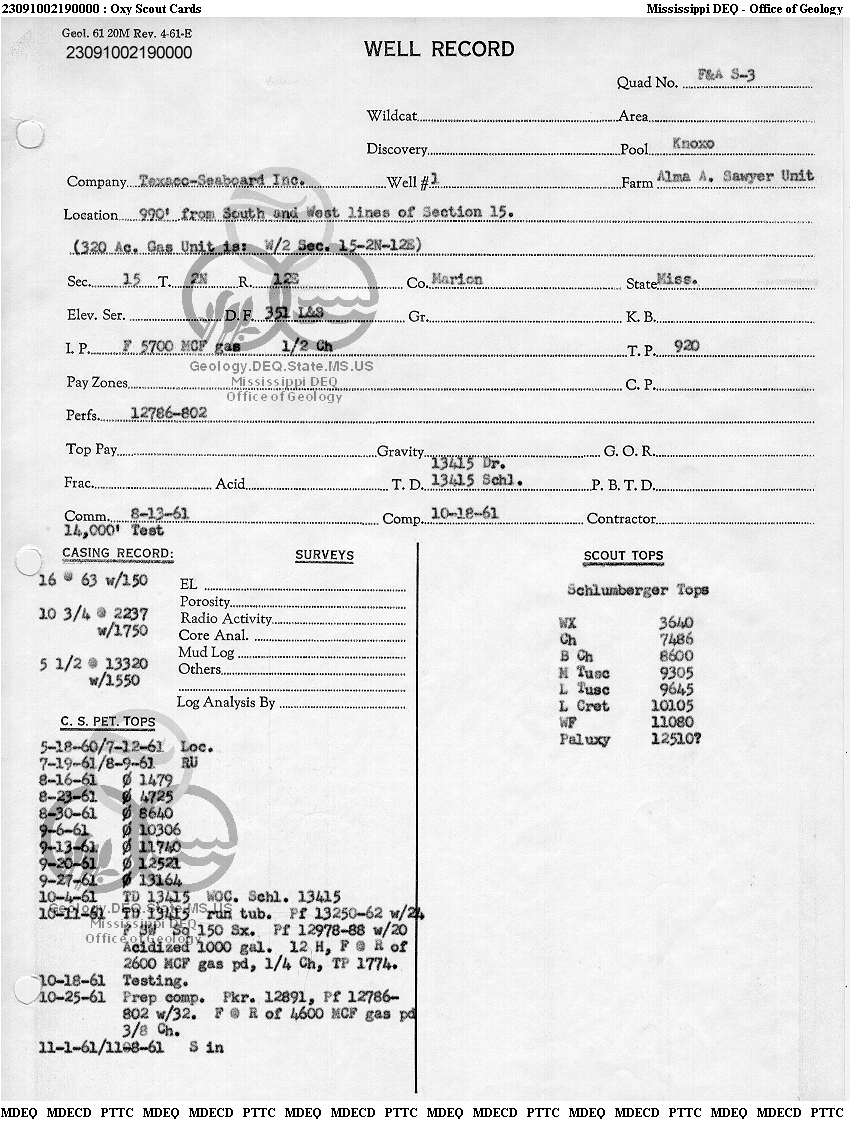 23091002190000 : Oxy Scout Cards Mississippi DEQ - Office of Geology
Geol. 61 20M Rev. 4-61-E
23091002190000
WELL RECORD
Quad No. F&A S-3
Wildcat Area
Discovery Pool Knoxo
Company Texaco-Seaboard Inc. Well #1 Farm Alma A. Sawyer Unit
Location 990' from South and West lines of Section 15.
(320 Ac. Gas Unit is: W/2 Sec. 15-2N-12E)
Sec. 15 T. 2N R. 12E Co. Marion State Miss.
Elev. Ser. D.F. 351 L&S Gr. K. B.
I. P. F 5700 MCF gas 1/2 Ch T. P. 920
Geology.DEQ.State.MS.US
Pay Zones Mississippi DEQ C. P.
Office of Geology
Perfs. 12786-802
Top Pay Gravity G. O. R.
13415 Dr.
Frac. Acid T. D. 13415 Schl. P. B. T. D.
Comm. 8-13-61 Comp. 10-18-61 Contractor
14,000' Test
CASING RECORD:
16 @ 63 w/150
10 3/4 @ 2237
w/1750
5 1/2 @ 13320
w/1550
SURVEYS
EL
Porosity
Radio Activity
Core Anal.
Mud Log
Others
Log Analysis By
C. S. PET. TOPS
5-18-60/7-12-61 Loc.
7-19-61/8-9-61 RU
8-16-61 Ø 1479
8-23-61 Ø 4725
8-30-61 Ø 8640
9-6-61 Ø 10306
9-13-61 Ø 11740
9-20-61 Ø 12521
9-27-61 Ø 13164
10-4-61 TD 13415 WOC. Schl. 13415
Geology.DEQ.State.MS.US
10-11-61 TD 13415 run tub. Pf 13250-62 w/24
Mississippi DEQ
F SW Sq 150 Sx. Pf 12978-88 w/20
Office of Geology
Acidized 1000 gal. 12 H, F @ R of
2600 MCF gas pd, 1/4 Ch, TP 1774.
10-18-61 Testing.
10-25-61 Prep comp. Pkr. 12891, Pf 12786-
802 w/32. F @ R of 4600 MCF gas pd
3/8 Ch.
11-1-61/11-8-61 S in
SCOUT TOPS
Schlumberger Tops
WX 3640
Ch 7486
B Ch 8600
M Tusc 9305
L Tusc 9645
L Cret 10105
WF 11080
Paluxy 12510?
MDEQ MDECD PTTC MDEQ MDECD PTTC MDEQ MDECD PTTC MDEQ MDECD PTTC MDEQ MDECD PTTC MDEQ MDECD PTTC